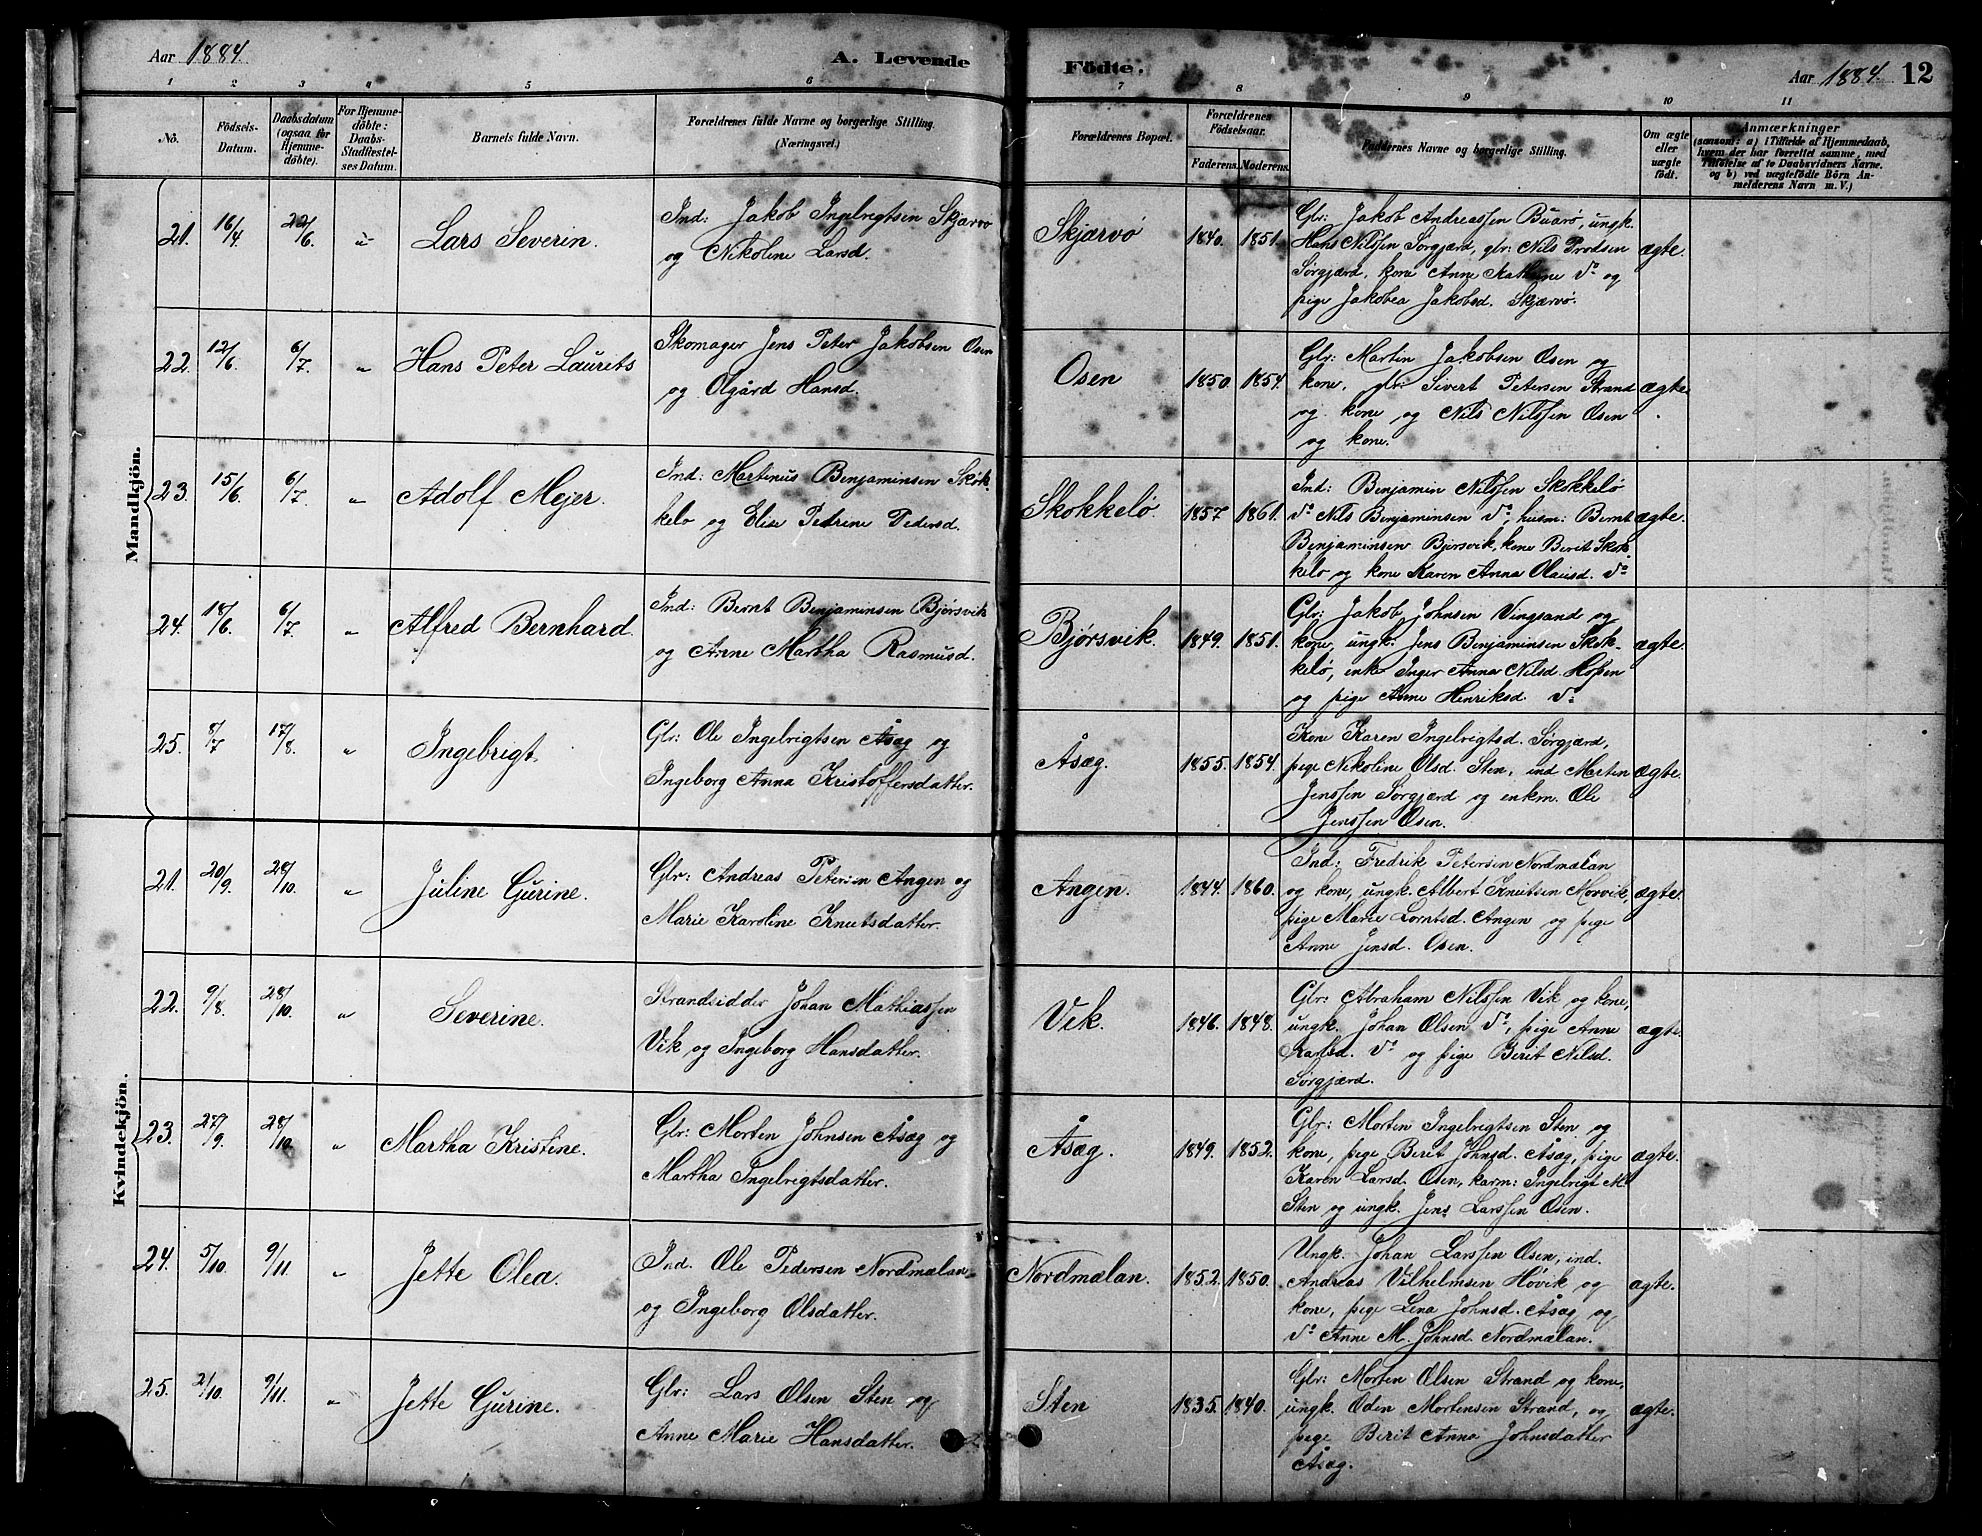 Aar 1884.
A. Levende
Födte.
Aar 1884.
12
1 2 3 4 5 6 7 8 9 10 11
No.
Födsels-
Datum.
Daabsdatum
(ogsaa for
Hjemme-
döbte).
For Hjemme-
döbte:
Daabs-
Stadfæstel-
ses Datum.
Barnets fulde Navn.
Forældrenes fulde Navne og borgerlige Stilling.
(Næringsvei.)
Forældrenes Bopæl.
Forældrenes
Födselsaar.
Faderens. Moderens.
Faddernes Navne og borgerlige Stilling.
Om ægte
eller
uægte
födt.
Anmærkninger
(saasom: a) i Tilfælde af Hjemmedaab,
hvem der har forrettet samme, med
Tilföielse af to Daabsvidners Navne.
og b) ved uægtefödte Börn An-
melderens Navn m. V.)
Mandkjön.
21. 16/4 22/6. "
Lars Severin.
Ind: Jakob Ingebrigtsen Skjærvø
og Nikoline Larsd.
Skjærvø
1840. 1851.
Glr: Jakob Andreassen Buarø, ungk.
Hans Nilssen Sørgjærd, glr: Nils Prodsen
Sørgjærd, kone Anne Kathrine do og
pige Jakobea Jakobsd. Skjærvø.
ægte.
22. 12/6. 6/7. "
Hans Peter Laurits
Skomager Jens Peter Jakobsen Osen
og Olgård Hansd.
Osen
1850. 1854.
Glr: Martin Jakobsen Osen og
kone, glr: Sivert Petersen Strand
og kone og Nils Nilssen Osen
og kone.
ægte.
23. 15/6. 6/7. "
Adolf Mejer.
Ind: Martinus Benjaminsen Skok-
kelø og Elise Petrine Pedersd.
Skokkelø.
1857 1861.
Ind: Benjamin Nilssen Skokkelø
do Nils Benjaminsen do, husm: Bernt
Benjaminsen Bjørsvik, kone Berit Skok-
kelø og kone Karen Anna Olausd. do
ægte.
24. 18/6. 6/7. "
Alfred Bernhard.
Ind: Bernt Benjaminsen Bjørsvik
og Anne Martha Rasmusd.
Bjørsvik.
1849. 1851.
Glr: Jakob Johnsen Vingsand og
kone, ungk. Jens Benjaminsen Skok-
kelø, enke Inger Anna Nilsd. Hopen
og pige Anne Henriksd. do
ægte.
25. 8/7 17/8. "
Ingebrigt.
Glr: Ole Ingebrigtsen Åsæg og
Ingeborg Anna Kristoffersdatter.
Åsæg.
1855. 1854.
Kone Karen Ingebrigtsd. Sørgjærd,
pige Nikoline Olsd. Sten, ind Morten
Jenssen Sørgjærd og enkm. Ole
Jenssen Osen.
ægte.
Kvindekjön.
21. 20/9. 28/10. "
Juline Gurine.
Glr: Andreas Petersen Angen og
Marie Karoline Knutsdatter.
Angen.
1844. 1860.
Ind: Fredrik Petersen Nordmælan
og kone, ungk. Albert Knutsen Morvik,
pige Marie Lorntsd. Angen og pige
Anne Jensd. Osen.
ægte.
22. 9/8. 28/10. "
Severine.
Strandsidder Johan Mathiassen
Vik og Ingeborg Hansdatter.
Vik.
1846. 1848.
Glr: Abraham Nilssen Vik og kone,
ungk. Johan Olsen do, pige Anne
do og pige Berit Nilsd.
Sørgjærd.
ægte.
23. 27/9. 28/10. "
Martha Kristine.
Glr: Morten Johnsen Åsæg og
Martha Ingebrigtsdatter.
Åsæg.
1849. 1852.
Glr: Morten Ingebrigtsen Sten og
kone, pige Berit Johnsd. Åsæg, pige
Karen Larsd. Osen, karm: Ingebrigt M.
Sten og ungk. Jens Larssen Osen.
ægte.
24. 5/10. 9/11. "
Jette Olea.
Ind. Ole Pedersen Nordmælan
og Ingeborg Olsdatter.
Nordmælan.
1852. 1850.
Ungk. Johan Larssen Osen, ind.
Andreas Vilhelmsen Høvik og
kone, pige Lina Johnsd. Åsæg, og
do Anne M. Johnsd. Nordmælan.
ægte.
25. 2/10. 9/11. "
Jette Gurine.
Glr: Lars Olsen Sten og
Anne Marie Hansdatter.
Sten
1835. 1840.
Glr: Morten Olsen Strand og kone,
ungk. Oden Mortensen Strand, og
pige Berit Anna Johnsdatter
Åsæg.
ægte.